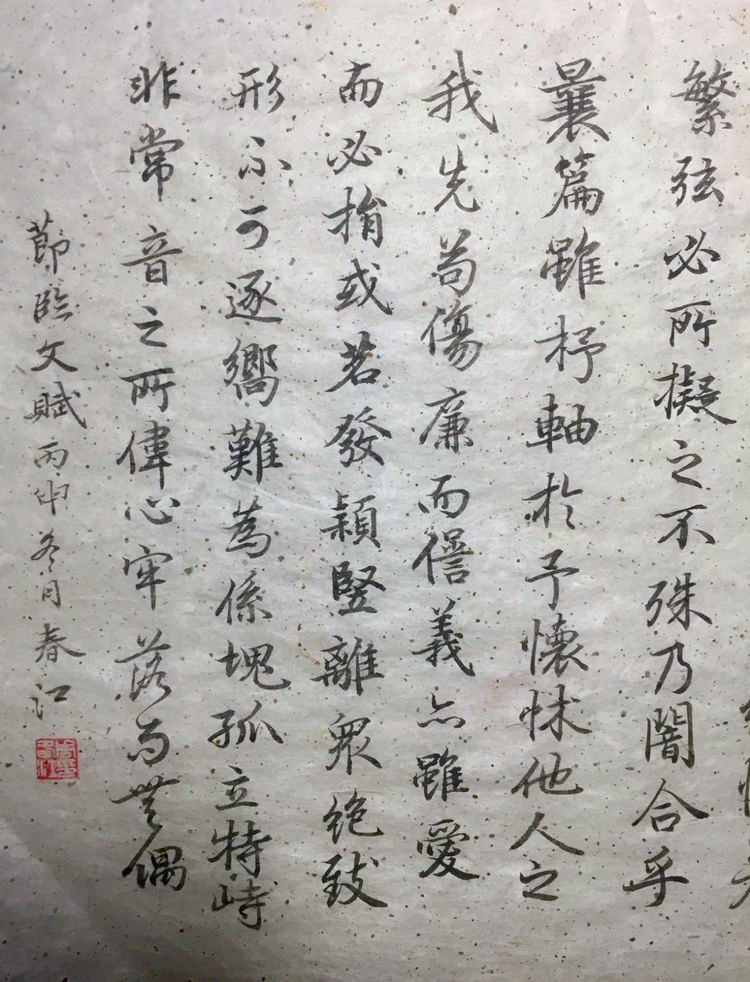 繁弦必所擬之不殊乃闇合乎
曩篇雖杼軸於予懷怵他人之
我先苟傷廉而愆義亦雖愛
而必捐或苕發穎豎離眾絕致
形不可逐嚮難為係塊孤立特峙
非常音之所偉心牢落而無偶
節臨文賦丙申冬月春江